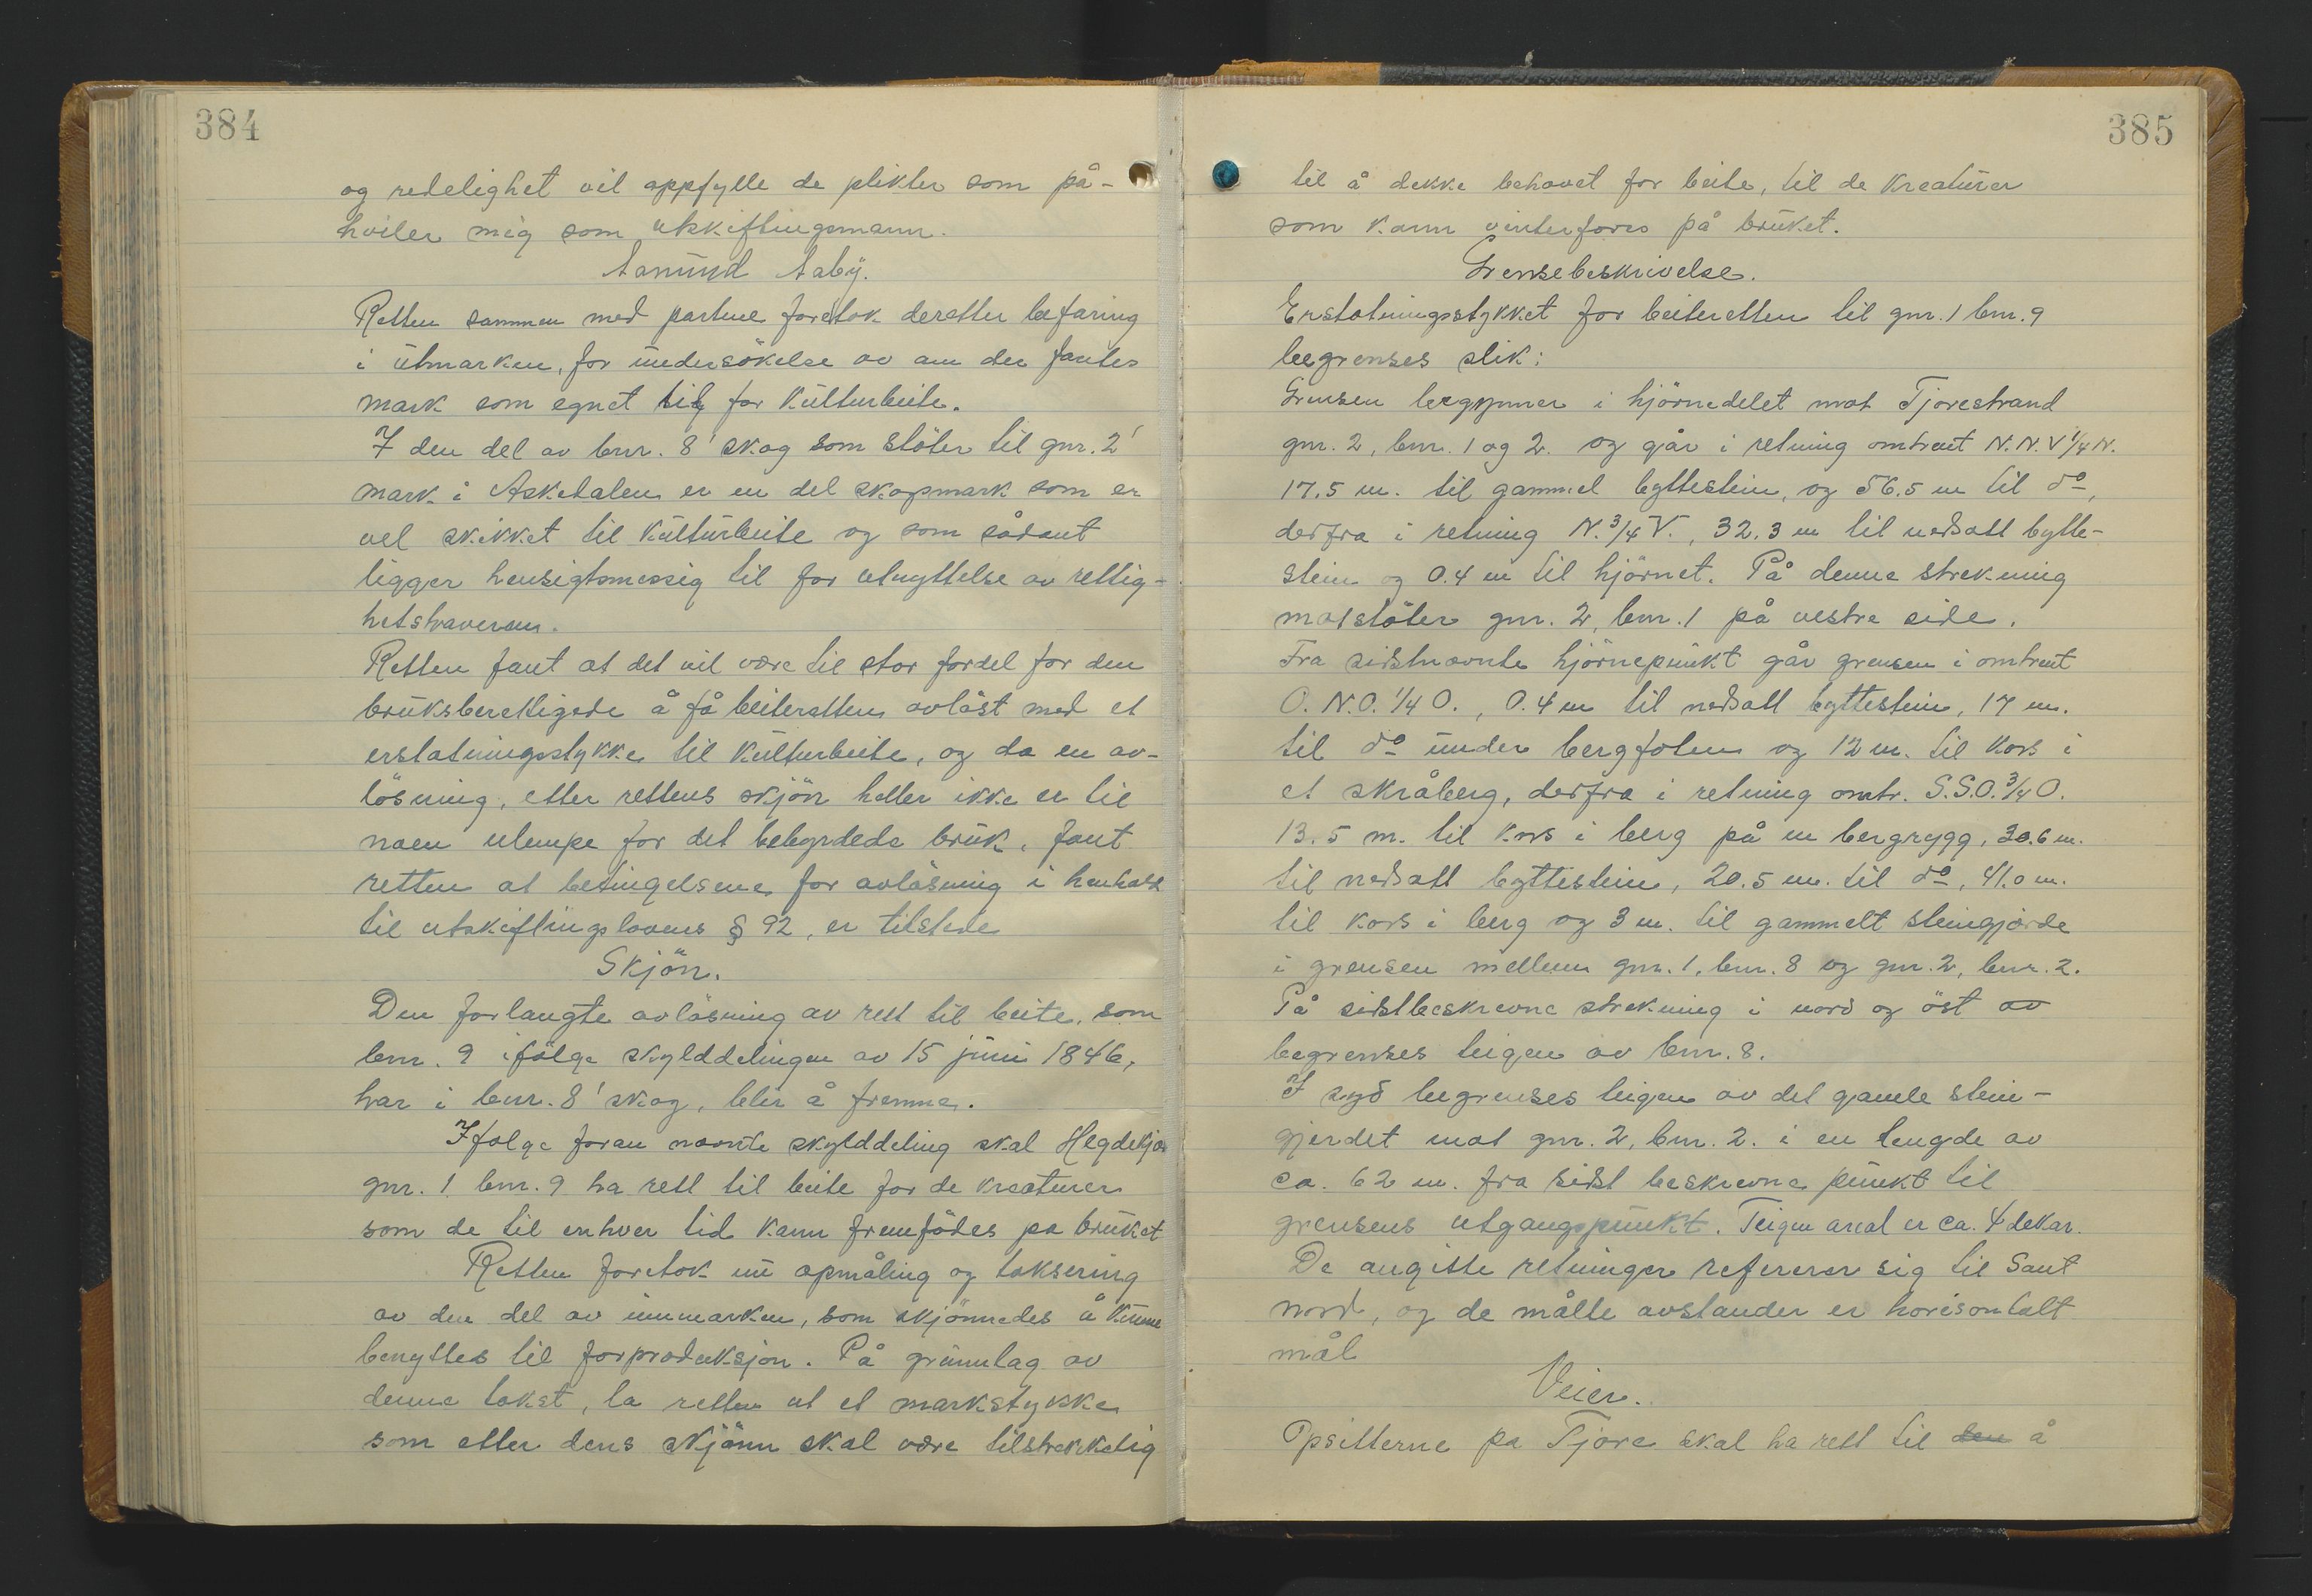 384
og redelighet vil oppfylle de plikter som på-
hviler mig som utskiftingsmann.
Aanund Aaby.
Retten sammen med partene foretok deretter befaring
i utmarken, for undersökelse av om der fantes
mark som egnet sig for kulturbeite.
I den del av bnr. 8' skog som stöter til gnr. 2'
mark i Askedalen er en del skogmark som er
vel skikket til kulturbeite og som sådant
ligger hensigtsmessig til for utnyttelse av rettig-
hetshaveren.
Retten fant at det vil være til stor fordel for den
bruksberettigede å få beiteretten avlöst med et
erstatningsstykke til kulturbeite, og da en av-
lösning, etter rettens skjön heller ikke er til
noen ulempe for det bebyrdede bruk, fant
retten at betingelsene for avlösning i henhold
til utskiftingslovens § 92, er tilstede
Skjön.
Den forlangte avlösning av rett til beite, som
bnr. 9 ifölge skylddelingen av 15 juni 1846,
har i bnr. 8' skog, blir å fremme.
Ifölge foran nevnte skylddeling skal
gnr. 1 bnr. 9 ha rett til beite for de kreaturer
som de til enhver tid kann fremfödes pa bruket
Retten foretok nu opmåling og taksering
av den del av innmarken, som skjönnedes å kunne
benyttes til forproduksjon. På grunnlag av
denne takst, la retten ut et markstykke
som etter dens skjönn skal være tilstrekkelig
385
til å dekke behovet for beite, til de kreaturer
som kann vinterfores på bruket.
Grensebeskrivelse.
Erstatningsstykket for beiteretten til gnr. 1 bnr. 9
begrenses slik:
Grensen begynner i hjörnedelet mot Tjorestrand
gnr. 2, bnr. 1 og 2. og går i retning omtrent N.N.V 1/4 N.
17.5 m. til gammel byttestein, og 56.5 m til do,
derfra i retning N. 3/4 V., 32.3 m til nedsatt bytte-
stein og 0.4 m til hjörnet. På denne strekning
motstöter gnr. 2, bnr. 1 på vestre side.
Fra sidstnevnte hjörnepunkt går grensen i omtrent
O.N.O. 1/4 O., 0.4 m til nedsatt byttestein, 17 m.
til do under bergfoten og 12 m. til kors i
et skråberg, derfra i retning omtr. S.S.O. 3/4 O.
13.5 m. til kors i berg på en bergrygg, 30.6 m.
til nedsatt byttestein, 20.5 m. til do, 41.0 m.
til kors i berg og 3 m. til gammelt steingjerde
i grensen mellem gnr. 1, bnr. 8 og gnr. 2, bnr. 2.
På sidstbeskrevne strekning i nord og öst av
begrenses teigen av bnr. 8.
I syd begrenses teigen av det gamle stein-
gjerdet mot gnr. 2, bnr. 2. i en lengde av
ca. 62 m. fra sidst beskrevne punkt til
grensens utgangspunkt. Teigen areal er ca. 4 dekar.
De angitte retninger refererer sig til Sant
nord, og de målte avstander er horisontalt
mål
Veier.
Opsitterne pa Tjore skal ha rett til den å